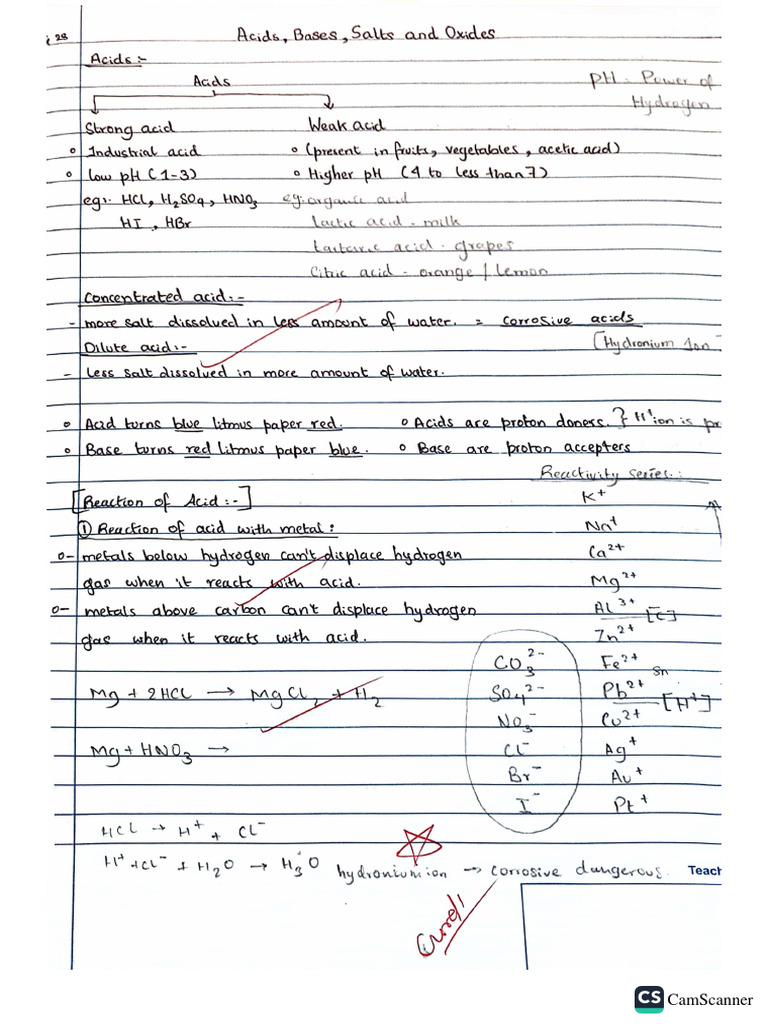 i 28
Acids, Bases, Salts and Oxides
Acids:-
Acids
pH - Power of
Hydrogen
Strong acid Weak acid
Industrial acid (present in fruits, vegetables, acetic acid)
Low pH (1-3) Higher pH (4 to less than 7)
eg:- HCl, H₂SO₄, HNO₃ eg:organic acid
HI, HBr Lactic acid - milk
Tartaric acid - grapes
Citric acid - orange / Lemon
Concentrated acid:-
- more salt dissolved in less amount of water. = corrosive acids
Dilute acid:- [Hydronium Ion
- Less salt dissolved in more amount of water.
Acid turns blue litmus paper red. Acids are proton doners. } H⁺ion is pr
Base turns red litmus paper blue. Base are proton accepters
Reactivity series:
[Reaction of Acid:-] K⁺
① Reaction of acid with metal: Na⁺
metals below hydrogen can't displace hydrogen Ca²⁺
gas when it reacts with acid. Mg²⁺
metals above carbon can't displace hydrogen Al³⁺ [C]
gas when it reacts with acid. Zn²⁺
CO₃²⁻ Fe²⁺ Sn
Mg + 2HCl → MgCl₂ + H₂ SO₄²⁻ Pb²⁺ [H⁺]
NO₃⁻ Cu²⁺
Mg + HNO₃ → Cl⁻ Ag⁺
Br⁻ Au⁺
I⁻ Pt⁺
HCl → H⁺ + Cl⁻
H⁺+Cl⁻ + H₂O → H₃⁺O hydronium ion → corrosive dangerous. Teach
CS CamScanner